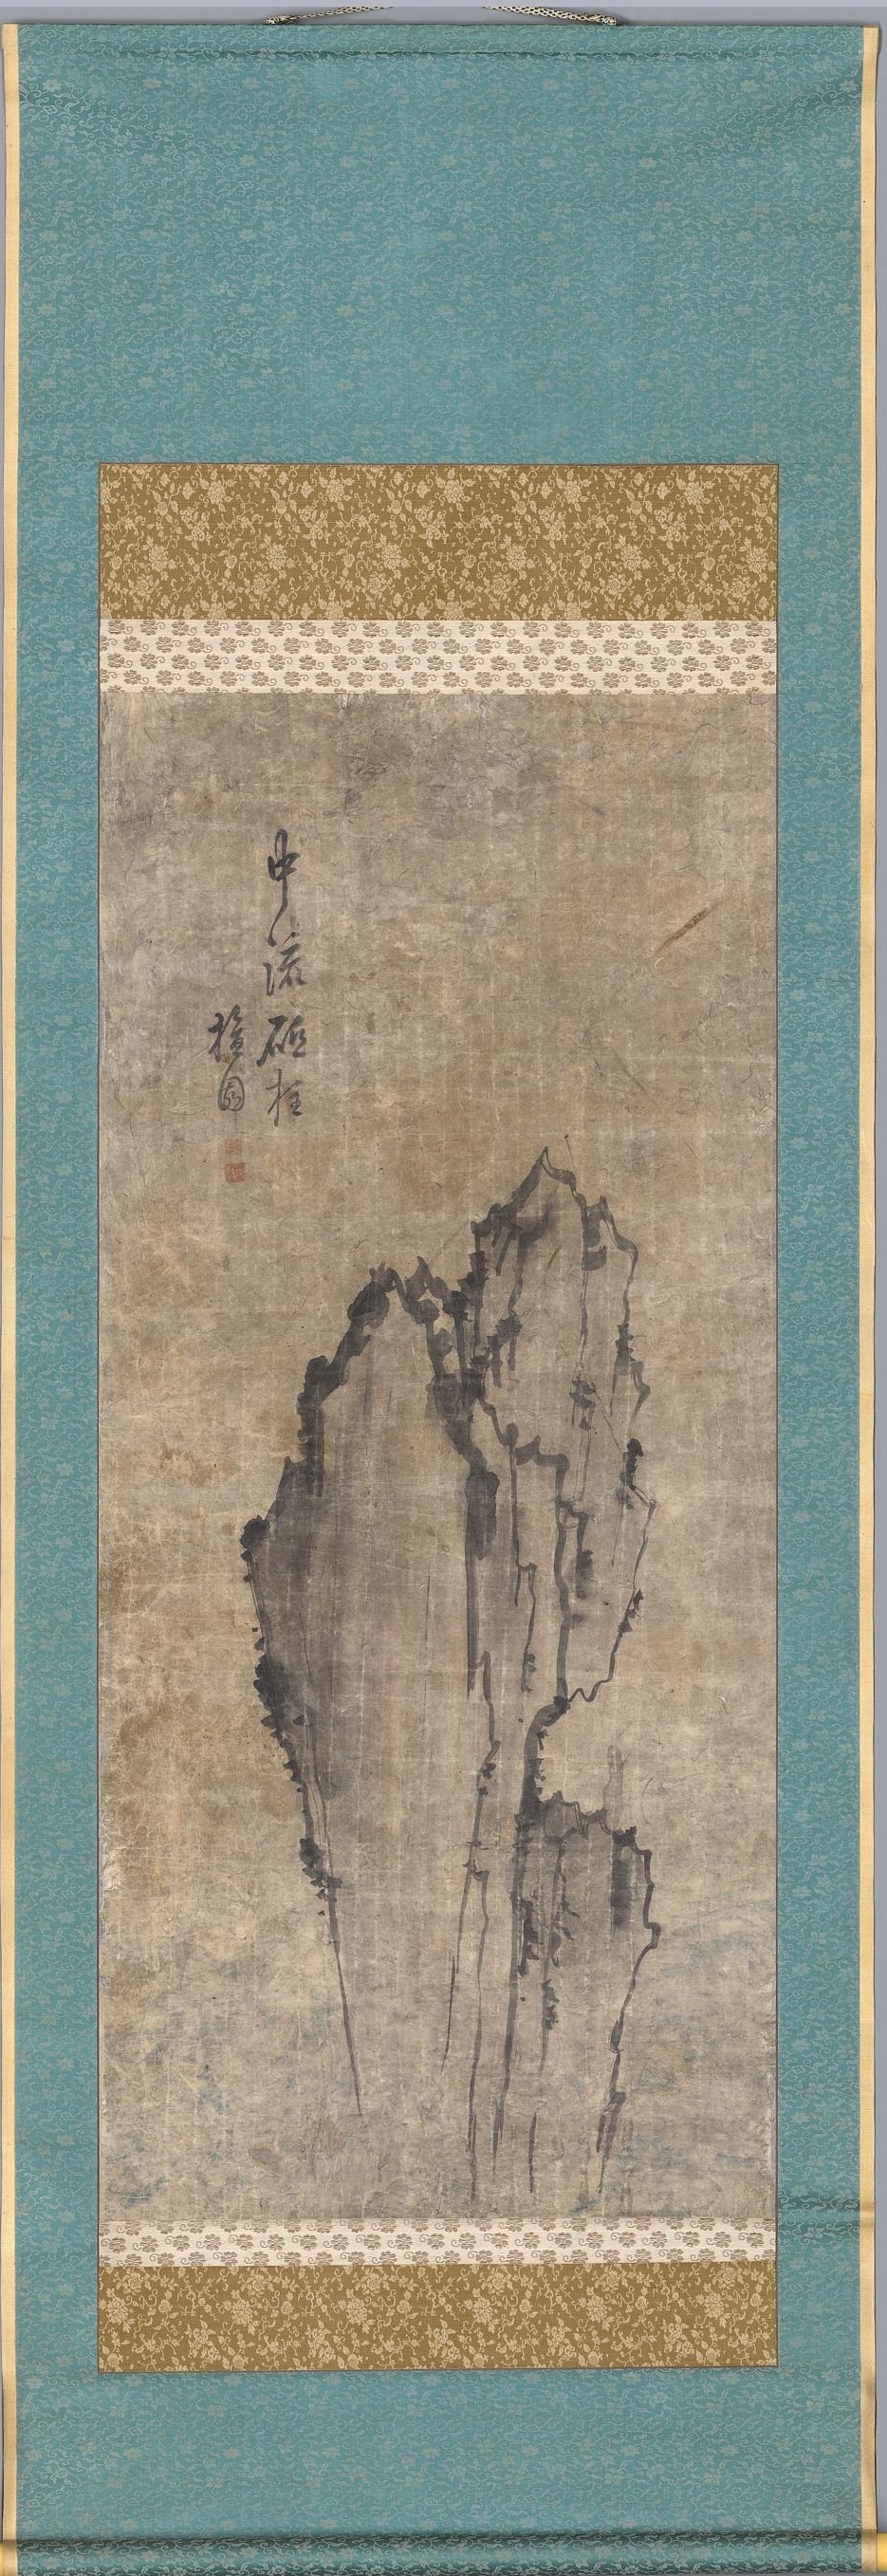 中流砥柱
檀園